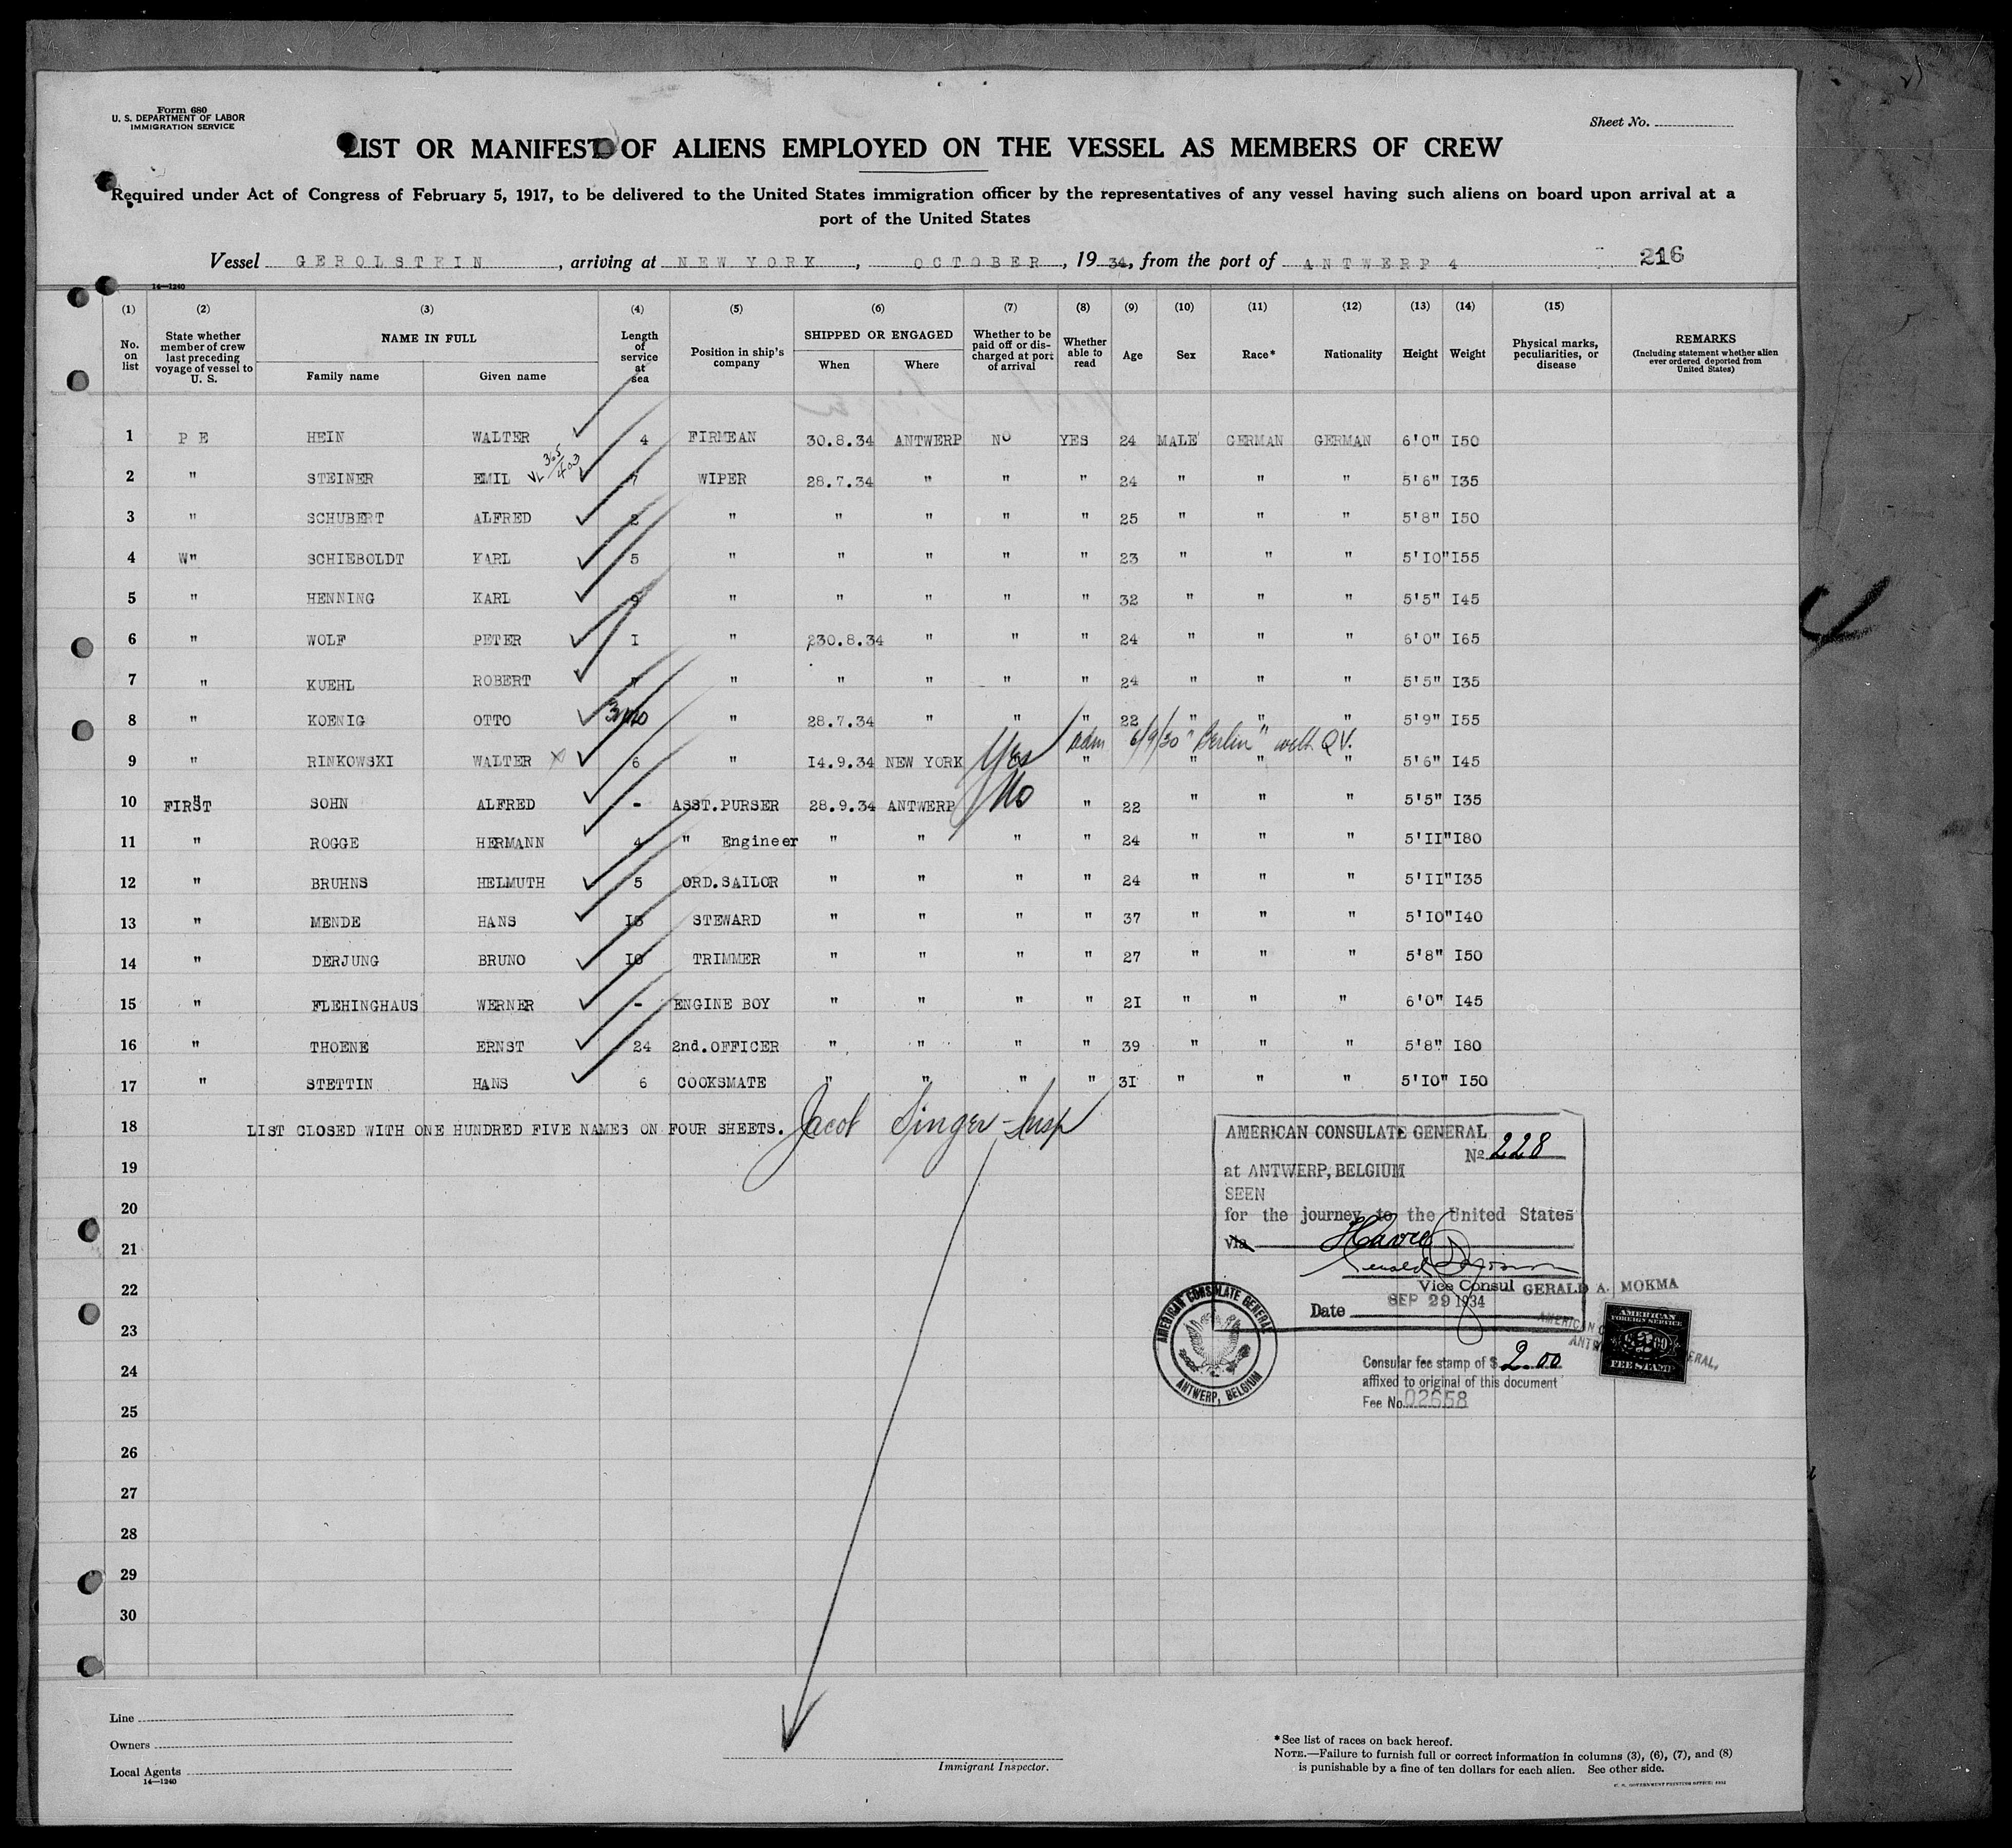 Form 680
U. S. DEPARTMENT OF LABOR
IMMIGRATION SERVICE
Sheet No.
LIST OR MANIFEST OF ALIENS EMPLOYED ON THE VESSEL AS MEMBERS OF CREW
Required under Act of Congress of February 5, 1917, to be delivered to the United States immigration officer by the representatives of any vessel having such aliens on board upon arrival at a
port of the United States
Vessel GEROLSTEIN, arriving at NEW YORK, OCTOBER, 1934, from the port of ANTWERP 4 216
14—1240
(1) (2) (3) (4) (5) (6) (7) (8) (9) (10) (11) (12) (13) (14) (15)
No. on list
State whether member of crew last preceding voyage of vessel to U. S.
NAME IN FULL
Family name Given name
Length of service at sea
Position in ship's company
SHIPPED OR ENGAGED
When Where
Whether to be paid off or discharged at port of arrival
Whether able to read
Age
Sex
Race*
Nationality
Height
Weight
Physical marks, peculiarities, or disease
REMARKS
(Including statement whether alien ever ordered deported from United States)
1 P E HEIN WALTER 4 FIRMEAN 30.8.34 ANTWERP NO YES 24 MALE GERMAN GERMAN 6'0" I50
VL 365/403
2 " STEINER EMIL 7 WIPER 28.7.34 " " " 24 " " " 5'6" I35
3 " SCHUBERT ALFRED 2 " " " " " 25 " " " 5'8" I50
4 W" SCHIEBOLDT KARL 5 " " " " " 23 " " " 5'10" I55
5 " HENNING KARL 9 " " " " " 32 " " " 5'5" I45
6 " WOLF PETER I " 230.8.34 " " " 24 " " " 6'0" I65
7 " KUEHL ROBERT " " " " " 24 " " " 5'5" I35
8 " KOENIG OTTO 3 mo " 28.7.34 " " " 22 " " " 5'9" I55
adm 6/9/30 "Berlin" with QV.
9 " RINKOWSKI WALTER X 6 " I4.9.34 NEW YORK Yes " " " " 5'6" I45
10 " FIRST SOHN ALFRED - ASST.PURSER 28.9.34 ANTWERP No " 22 " " " 5'5" I35
11 " ROGGE HERMANN 4 " Engineer " " " " 24 " " " 5'II" I80
12 " BRUHNS HELMUTH 5 ORD.SAILOR " " " " 24 " " " 5'II" I35
13 " MENDE HANS I3 STEWARD " " " " 37 " " " 5'IO" I40
14 " DERJUNG BRUNO IO TRIMMER " " " " 27 " " " 5'8" I50
15 " FLEHINGHAUS WERNER - ENGINE BOY " " " " 2I " " " 6'0" I45
16 " THOENE ERNST 24 2nd.OFFICER " " " " 39 " " " 5'8" I80
17 " STETTIN HANS 6 COOKSMATE " " " " 3I " " " 5'IO" I50
18 LIST CLOSED WITH ONE HUNDRED FIVE NAMES ON FOUR SHEETS. Jacob Singer - Insp
19
20
21
22
23
24
25
26
27
28
29
30
AMERICAN CONSULATE GENERAL
No 228
at ANTWERP, BELGIUM
SEEN
for the journey to the United States
via Havre
Vice Consul GERALD A. MOKMA
Date SEP 29 1934
AMERICAN CONSULATE GENERAL
ANTWERP, BELGIUM
AMERICAN FOREIGN SERVICE
FEE STAMP
Consular fee stamp of $ 2.00
affixed to original of this document
Fee No. 02658
Line
Owners
Local Agents
14—1240
Immigrant Inspector.
*See list of races on back hereof.
NOTE.—Failure to furnish full or correct information in columns (3), (6), (7), and (8)
is punishable by a fine of ten dollars for each alien. See other side.